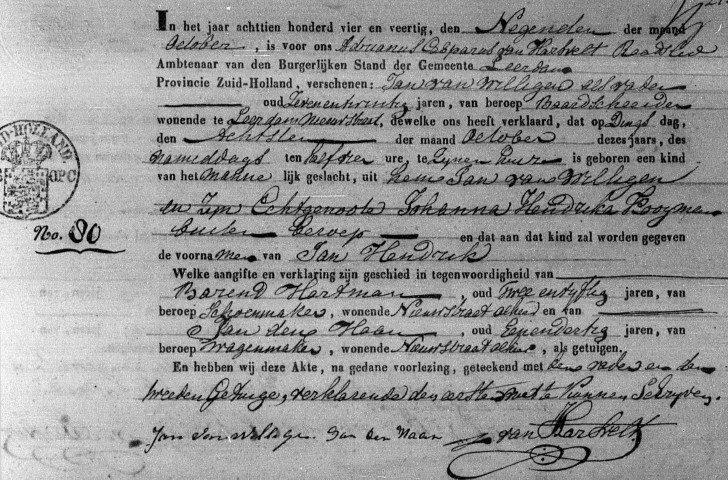 In het jaar achttien honderd vier en veertig, den Negenden der maand
October, is voor ons Adrianus van Hartvelt
Ambtenaar van den Burgerlijken Stand der Gemeente Leerdam
Provincie Zuid-Holland, verschenen: Jan van Willigen als vader
oud jaren, van beroep Baardscheerder
wonende te Leerdam Nieuwstraat, dewelke ons heeft verklaard, dat op Dings dag,
den Achtsten der maand October dezes jaars, des
namiddags ten half ure, te zynen huize is geboren een kind
van het manne lijk geslacht, uit hem Jan van Willigen
en zyn Echtgenoote Johanna Hendrika Kooyman
buiten beroep en dat aan dat kind zal worden gegeven
de voorna men van Jan Hendrik
Welke aangifte en verklaring zijn geschied in tegenwoordigheid van
Barend Hartman, oud Twee en vyftig jaren, van
beroep Schoenmaker, wonende Nieuwstraat alhier en van
Jan den Haan, oud Eenendertig jaren, van
beroep Wagenmaker, wonende Nieuwstraat alhier, als getuigen.
En hebben wij deze Akte, na gedane voorlezing, geteekend met den vader en den
tweeden Getuige, verklarende den eersten niet te kunnen Schryven.
Jan van Willigen. Jan den Haan van Hartvelt
D-HOLLAND
No. 80